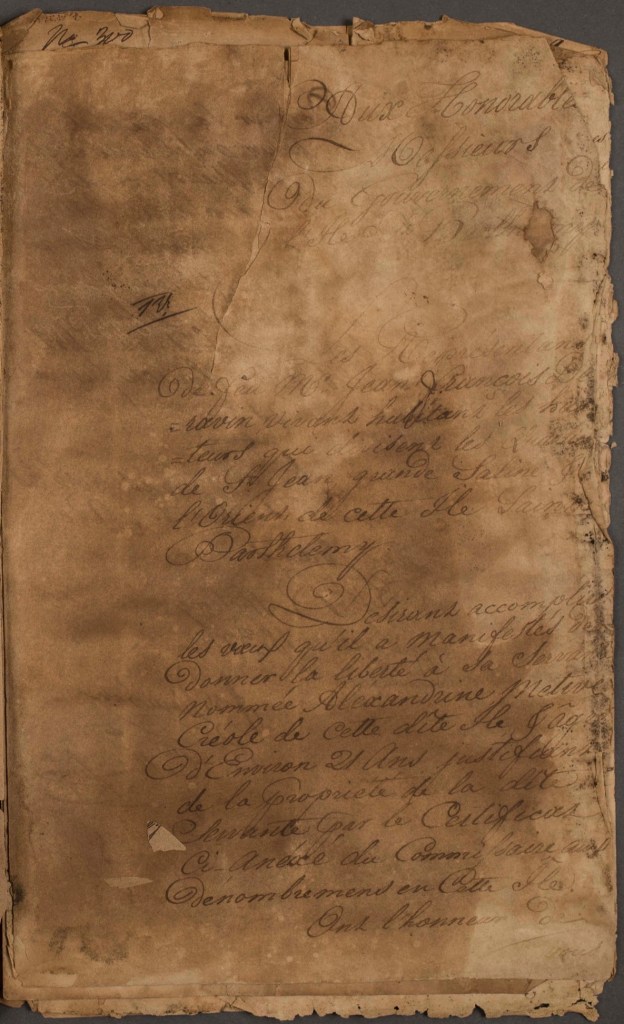 No 300
Aux Honorable
Messieurs
Du Gouvernement de
Les Représentans
De feu Mr. Jean François D
=ravin vivent habitant et
=teurs qui
de St. Jean grande Saline
l'Orient de cette Ile Saint
Barthelemy
Désirant accomplir
les vœux qu'il a manifestés de
Donner la liberté à Sa
nommée Alexandrine Native
Créole de cette dite Ile
D'Environ 21 Ans justifiant
de la propriété de la dite
par le Certificat
Ci Anéxé du Commissaire aux
Denombremens en Cette Ile.
Ont l'honneur De
vous